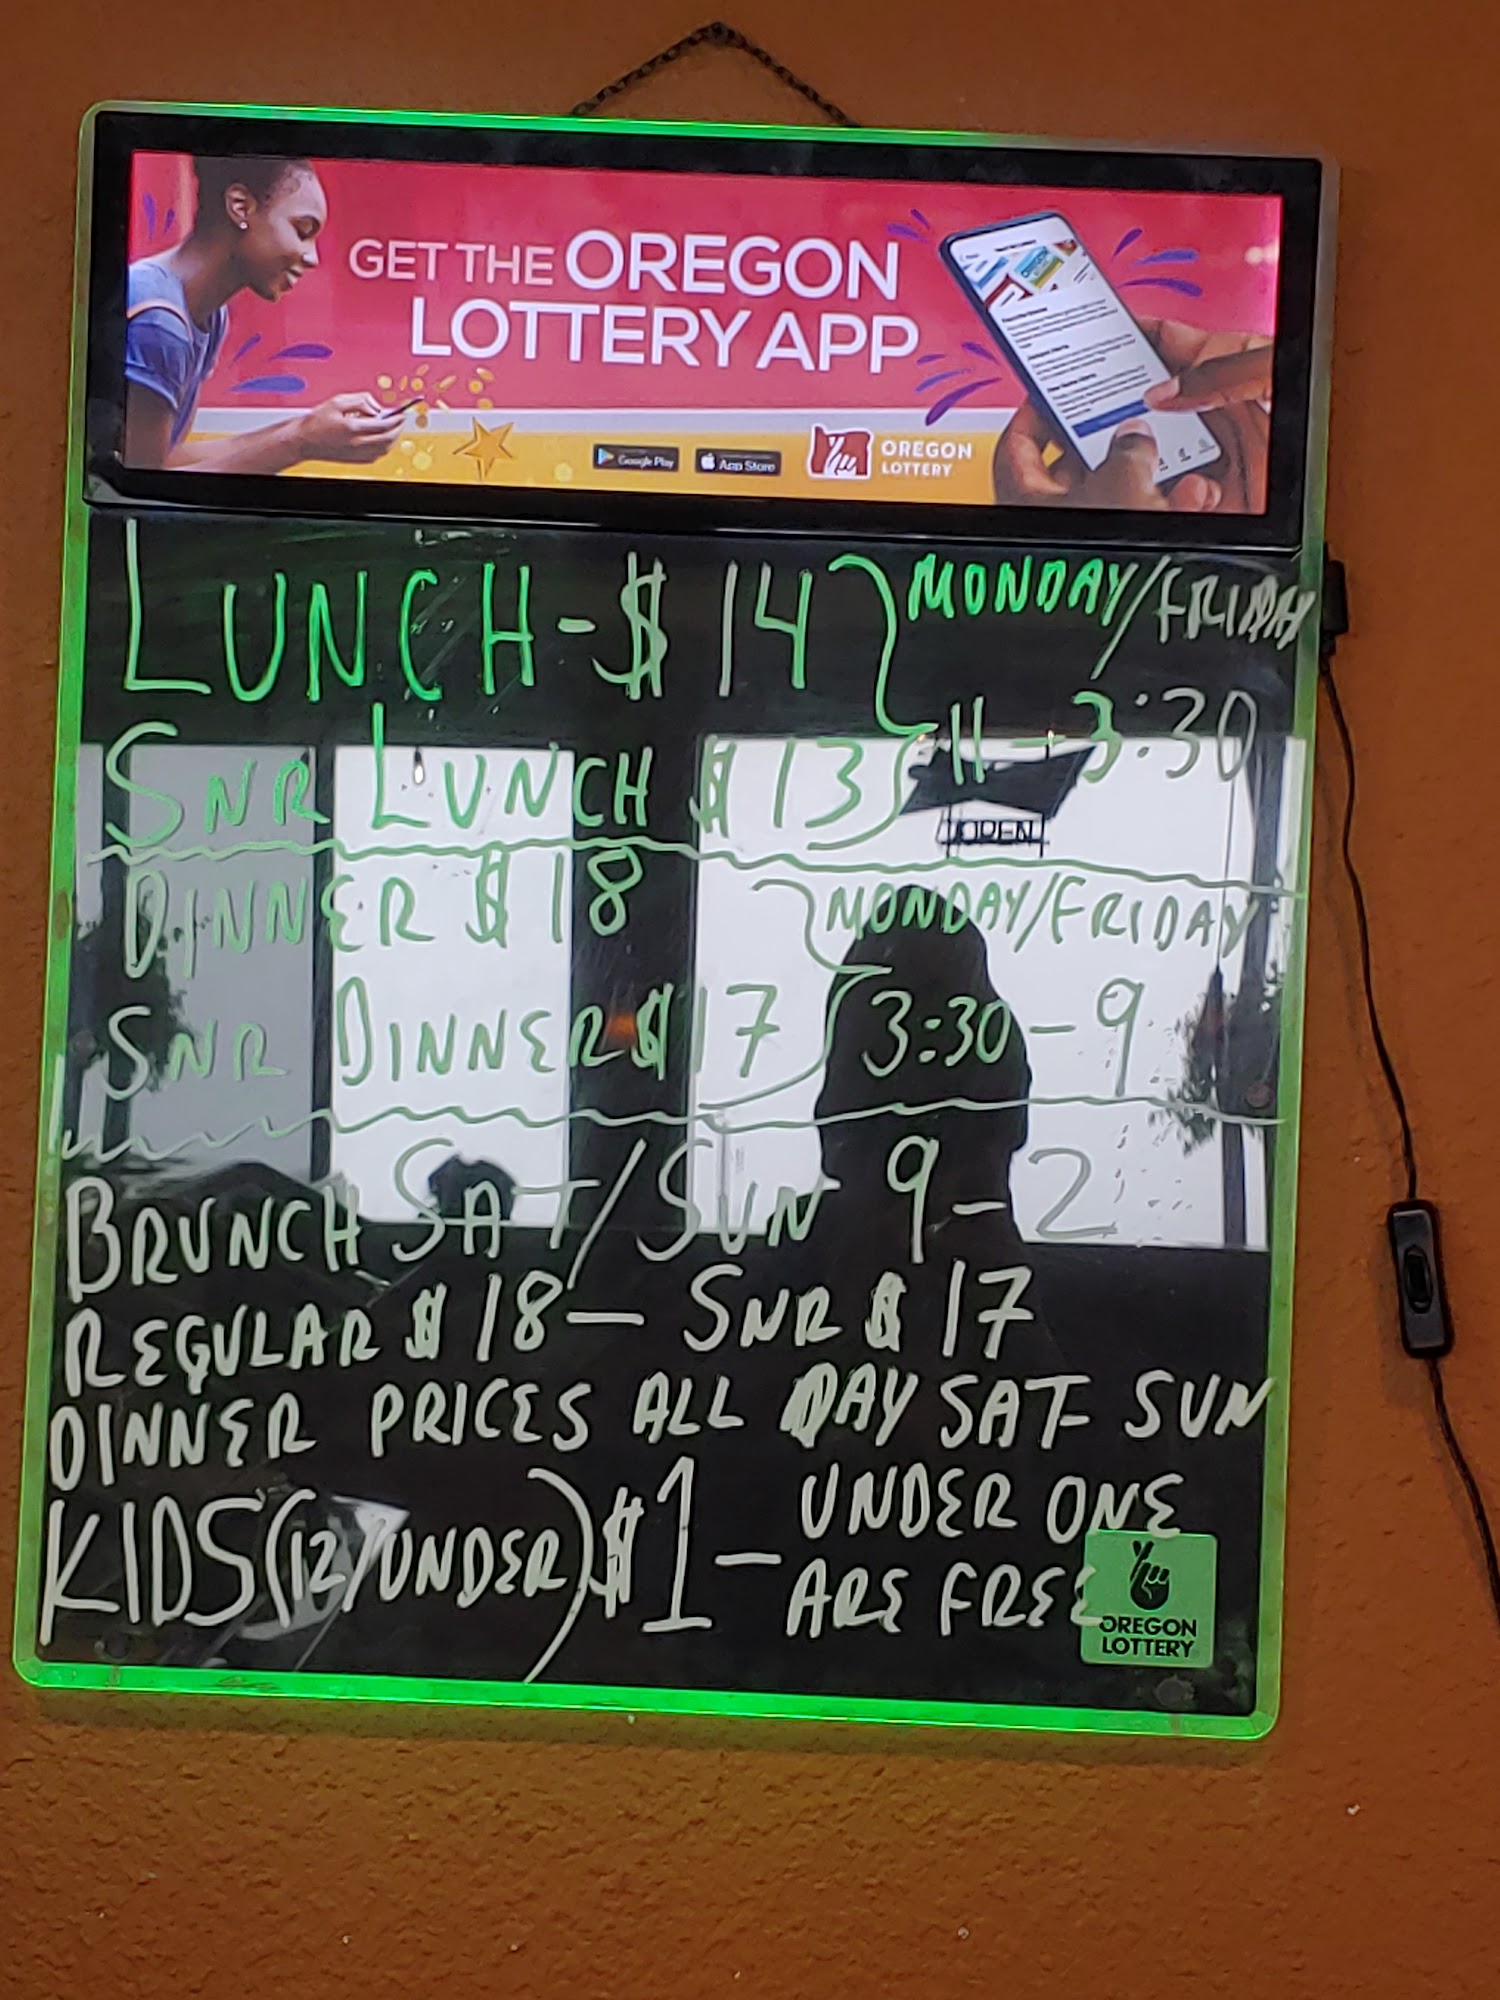 GET THE OREGON
LOTTERY APP
Google Play
App Store
OREGON
LOTTERY
LUNCH-$14
MONDAY/FRIDAY
SNR LUNCH $13
11-3:30
OPEN
DINNER $18
MONDAY/FRIDAY
SNR DINNER $17
3:30-9
BRUNCH SAT/SUN 9-2
REGULAR $18- SNR $17
DINNER PRICES ALL DAY SAT SUN
KIDS(12/UNDER)$1-
UNDER ONE
ARE FREE
OREGON
LOTTERY